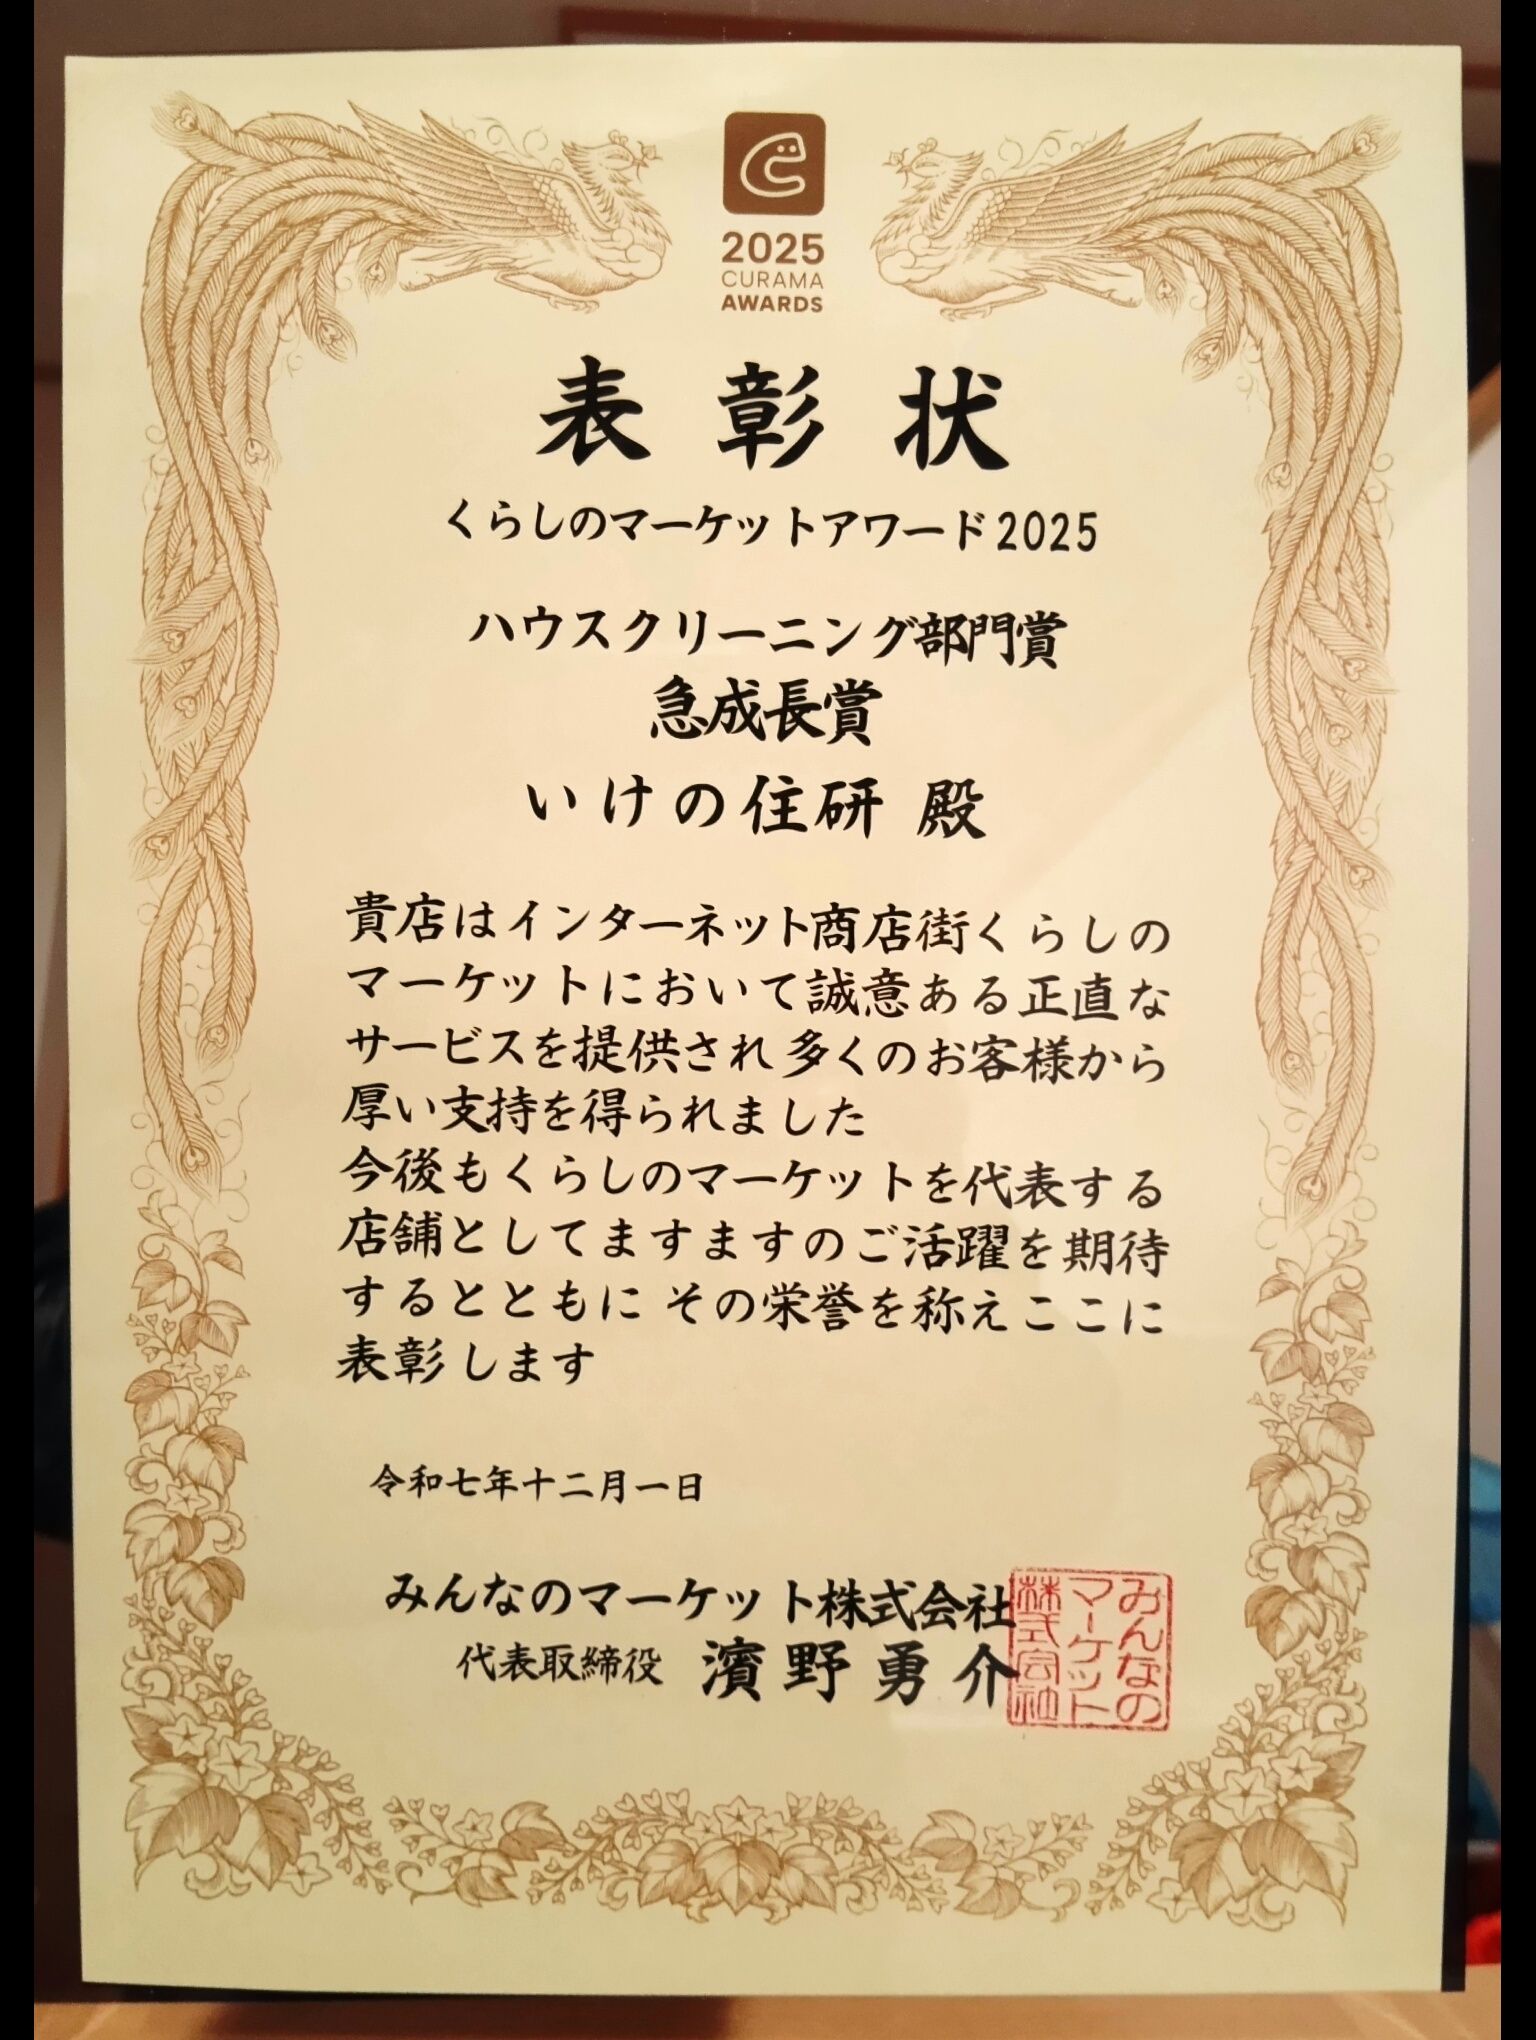 2025
CURAMA
AWARDS
表彰状
くらしのマーケットアワード2025
ハウスクリーニング部門賞
急成長賞
いけの住研 殿
貴店はインターネット商店街くらしの
マーケットにおいて誠意ある正直な
サービスを提供され 多くのお客様から
厚い支持を得られました
今後もくらしのマーケットを代表する
店舗としてますますのご活躍を期待
するとともに その栄誉を称えここに
表彰します
令和七年十二月一日
みんなのマーケット株式会社
代表取締役 濱野勇介
みんなの
マーケット
株式会社